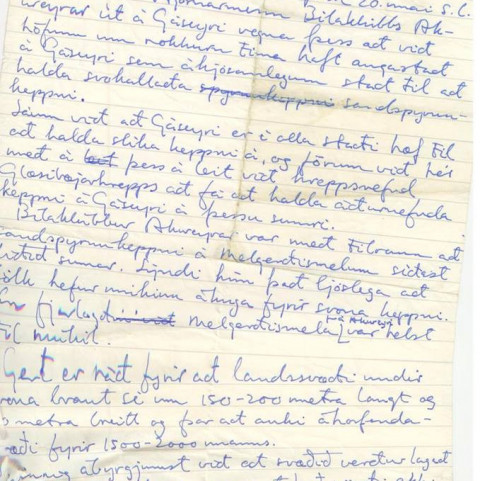 20. maí s.l.
Bílaklúbbs Ak-
ureyrar út á Gáseyri vegna þess að við
höfum um nokkurn tíma haft augastað
á Gáseyri sem ákjósanlegum stað til að
halda svokallaða spyrnukeppni sandspyrnu-
keppni.
Sáum við að Gáseyri er í alla staði hæf til
að halda slíka keppni á, og förum við hér
með á leit þess á leit við hreppsnefnd
Glæsibæjarhrepps að fá að halda áðurnefnda
keppni á Gáseyri á þessu sumri.
Bílaklúbbur Akureyrar var með tilraun að
sandspyrnukeppni á melgerðismelum síðast
liðið sumar. Sýndi hún það ljóslega að
fólk hefur mikinn áhuga fyrir svona keppni.
En fjarlægð melgerðismela frá Akureyri var helst
til mikil.
Gert er ráð fyrir að landssvæði undir
svona braut sé um 150-200 metra langt og
metra breitt og þar að auki áhorfenda-
svæði fyrir 1500-2000 manns.
ábyrgjumst við að svæðið verður lagað